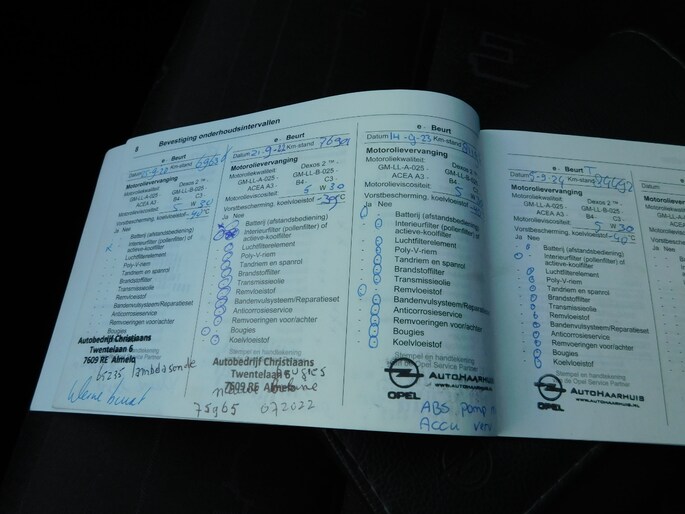 8 Bevestiging onderhoudsintervallen
e - Beurt
Datum Km-stand
Motorolievervanging
Motoroliekwaliteit: Dexos 2 ™ -
GM-LL-A-025 - GM-LL-B-025 -
ACEA A3 - B4- C3
Motorolieviscositeit: 5 W 30
Vorstbescherming, koelvloeistof -40°C
Ja Nee
Batterij (afstandsbediening)
Interieurfilter (pollenfilter) of
actieve-koolfilter
Luchtfilterelement
Poly-V-riem
Tandriem en spanrol
Brandstoffilter
Transmissieolie
Remvloeistof
Bandenvulsysteem/Reparatieset
Anticorrosieservice
Remvoeringen voor/achter
Bougies
Koelvloeistof
Autobedrijf Christiaans
Twentelaan 6
7609 RE Almelo
65235 lambdasonde
kleine beurt
e - Beurt
Datum 21-9-22 Km-stand
Motorolievervanging
Motoroliekwaliteit: Dexos 2 ™ -
GM-LL-A-025 - GM-LL-B-025 -
ACEA A3 - B4- C3
Motorolieviscositeit: 5 W 30
Vorstbescherming, koelvloeistof
Ja Nee
Batterij (afstandsbediening)
Interieurfilter (pollenfilter) of
actieve-koolfilter
Luchtfilterelement
Poly-V-riem
Tandriem en spanrol
Brandstoffilter
Transmissieolie
Remvloeistof
Bandenvulsysteem/Reparatieset
Anticorrosieservice
Remvoeringen voor/achter
Bougies
Koelvloeistof
Stempel en handtekening
Autobedrijf Christiaans
Twentelaan 6,
7609 RE Almelo
75965 072022
e - Beurt
Datum 14-9-23 Km-stand
Motorolievervanging
Motoroliekwaliteit: Dexos 2 ™
GM-LL-A-025 - GM-LL-B-025
ACEA A3 - B4-
Motorolieviscositeit: 5 W
Vorstbescherming, koelvloeistof
Ja Nee
Batterij (afstandsbediening)
Interieurfilter (pollenfilter) of
actieve-koolfilter
Luchtfilterelement
Poly-V-riem
Tandriem en spanrol
Brandstoffilter
Transmissieolie
Remvloeistof
Bandenvulsysteem/Reparatieset
Anticorrosieservice
Remvoeringen voor/achter
Bougies
Koelvloeistof
Stempel en handtekening
OPEL AUTOHAARHUIS
WWW.AUTOHAARHUIS.NL
ABS pomp
Accu
e - Beurt
Datum 5-9-24 Km-stand
Motorolievervanging
Motoroliekwaliteit: Dexos 2 ™ -
GM-LL-A-025 - GM-LL-B-025 -
ACEA A3 - B4- C3
Motorolieviscositeit: 5 W 30
Vorstbescherming, koelvloeistof -40°C
Ja Nee
Batterij (afstandsbediening)
Interieurfilter (pollenfilter) of
actieve-koolfilter
Luchtfilterelement
Poly-V-riem
Tandriem en spanrol
Brandstoffilter
Transmissieolie
Remvloeistof
Bandenvulsysteem/Reparatieset
Anticorrosieservice
Remvoeringen voor/achter
Bougies
Koelvloeistof
Stempel en handtekening
de Opel Service Partner
OPEL AUTOHAARHUIS
WWW.AUTOHAARHUIS.NL
Datum
Motorolieve
Motoroliekwa
GM-LL-A
ACE
Motorolievisc
Vorstbescher
Ja Nee